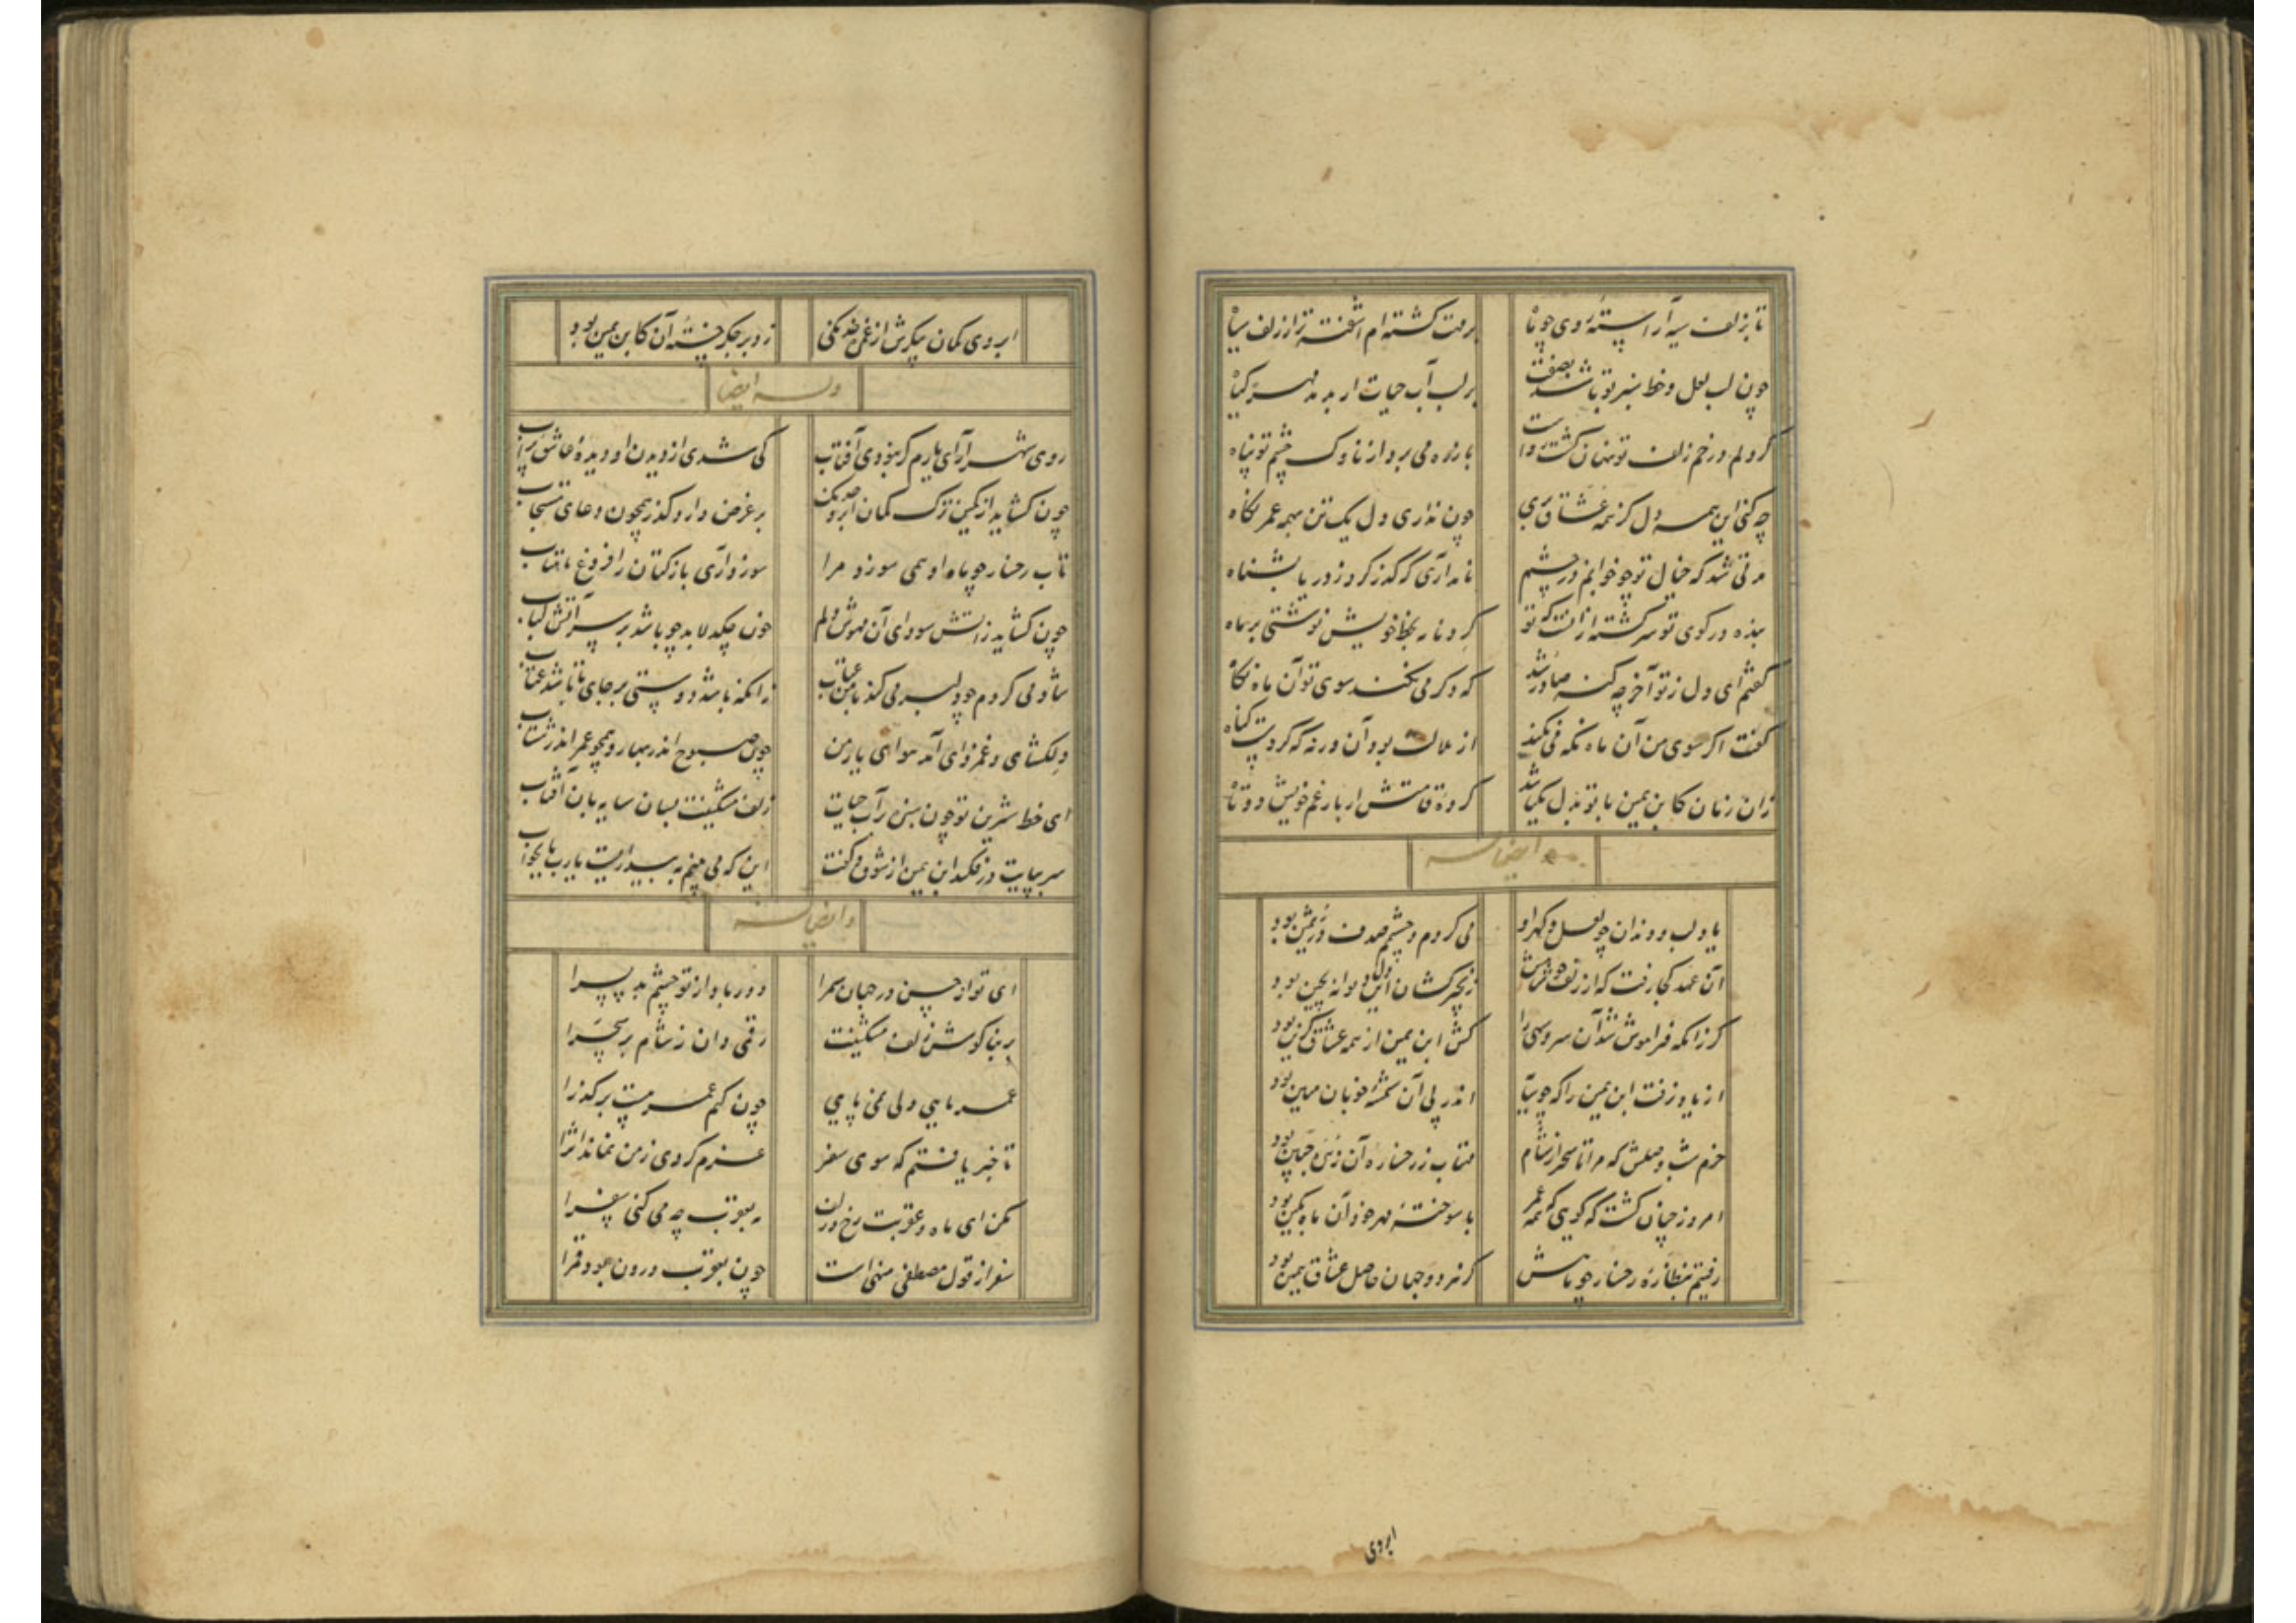 تا بزلف سیه آراسته روی چو ماه
برمت گشته‌ام آشفته‌تر از زلف سیاه
چون لب لعل و خط سبز تو باشد بصفت
بر لب آب حیات ار بدمد مهر گیاه
گر دلم در خم زلف تو نهان گشت رواست
با زره می برد از ناوک چشم تو پناه
چه کنی این همه دل کز همه عشاق بری
چون نداری دل یک تن همه عمر نگاه
مدتی شد که خیال تو چو خوابم در چشم
نامد آری که گذر کرد ز دریا بشناه
بنده در کوی تو سرگشته از آنست که تو
کرد نامه بخط خویش نوشتی بر ماه
گفتم ای دل ز تو آخر چه گنه صادر شد
که دگر می نکند سوی تو آن ماه نگاه
گفت اگر سوی من آن ماه نگه می نکند
از ملالت بود آن ورنه که کردست گناه
زان زمان کابن یمین با تو بدل یکتا شد
کرده قامتش از بار غم خویش دوتاه
ایضا له
یاد لب و دندان چو لعل و گهر او
می کردم و چشمم صدف در ثمین بود
آن عهد کجا رفت که از زلف خوشش
زنجیرکشان این دل دیوانه بچین بود
گر زانکه فراموش شد آن سرو سهی را
کش ابن یمین از همه عشاق گزین بود
از یاد نرفت ابن یمین را که چو
اندر پی آن خوبان مهین بود
خرم شب وصلش که مرا تا سحر از شام
مهتاب ز رخساره آن زهره جبین بود
امروز چنان گشت که گویی که همه عمر
با سوخته مهر خود آن ماه بکین بود
رفتیم بنظاره رخسار چو ماهش
کز هر دو جهان حاصل عشاق همین بود
ابروی
ابروی کمان پیکرش از غمزه خدنگی
زد بر جگر خسته آن کابن یمین بود
وله ایضا
روی شهرآرای یارم گر نبودی آفتاب
کی شدی از دیدن او دیده عاشق پرآب
چون گشاید از کمین ترک کمان ابرو خدنگ
بر غرض دارد گذر همچون دعای مستجاب
تاب رخسار چو ماه او همی سوزد مرا
سوزد آری باز کتان را فروغ ماهتاب
چون گشاید ز آتش سودای آن مهوش دلم
خون چکد لابد چو باشد بر سر آتش کباب
شاد می گردم چو دلبر می کند با من عتاب
زانکه باشد دوستی بر جای تا باشد عتاب
دلگشای و غمزدای آمد هوای یار من
چون صبوح اندر بهار و همچو عمر اندر شتاب
ای خط شیرین تو چون سبزه بر آب حیات
زلف مشکینت بسان سایه بان آفتاب
سر بپایت در فکند ابن یمین از شوق و گفت
این که می بینم به بیداریست یارب یا بخواب
و ایضا له
ای تو از حسن در جهان سمرا
دور باد از تو چشم بد پسرا
بر بناگوش زلف مشکینت
رقمی دان ز شام بر سحرا
عمر مایی ولی نمی پایی
چون کنم عمر هست بر گذرا
تا خبر یافتم که سوی سفر
عزم کردی ز من نماند اثرا
مکن ای ماه و عقربت رخ و زلف
به عقرب چه می کنی سفرا
سفر از قول مصطفی منهی است
چون بعقرب درون بود قمرا